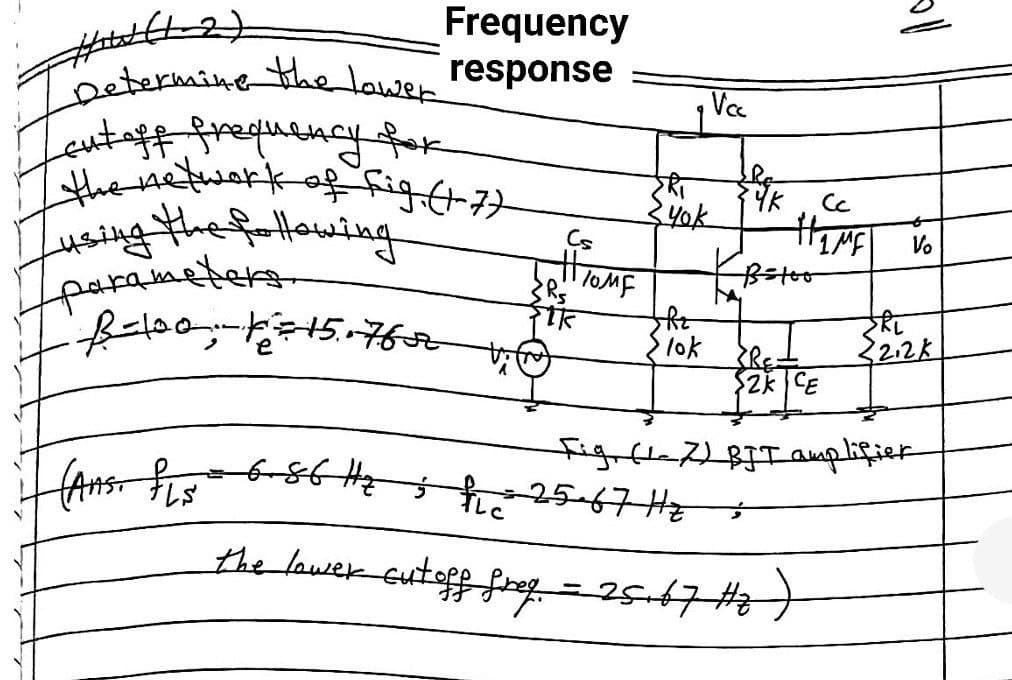 Frequency
response
H.W(1-2)
Determine the lower
cutoff frequency for
the network of Fig.(1-7)
using the following
parameters.
β=100; re=15.76Ω
Vcc
R1
40k
Rc
4k
Cc
1MF
Vo
Cs
10MF
β=100
Rs
1k
Vi
R2
10k
RE
2k
CE
RL
2.2k
Fig. (1-7) BJT amplifier
(Ans. fLS = 6.86 Hz ; fLC = 25.67 Hz ;
the lower cutoff freq. = 25.67 Hz )